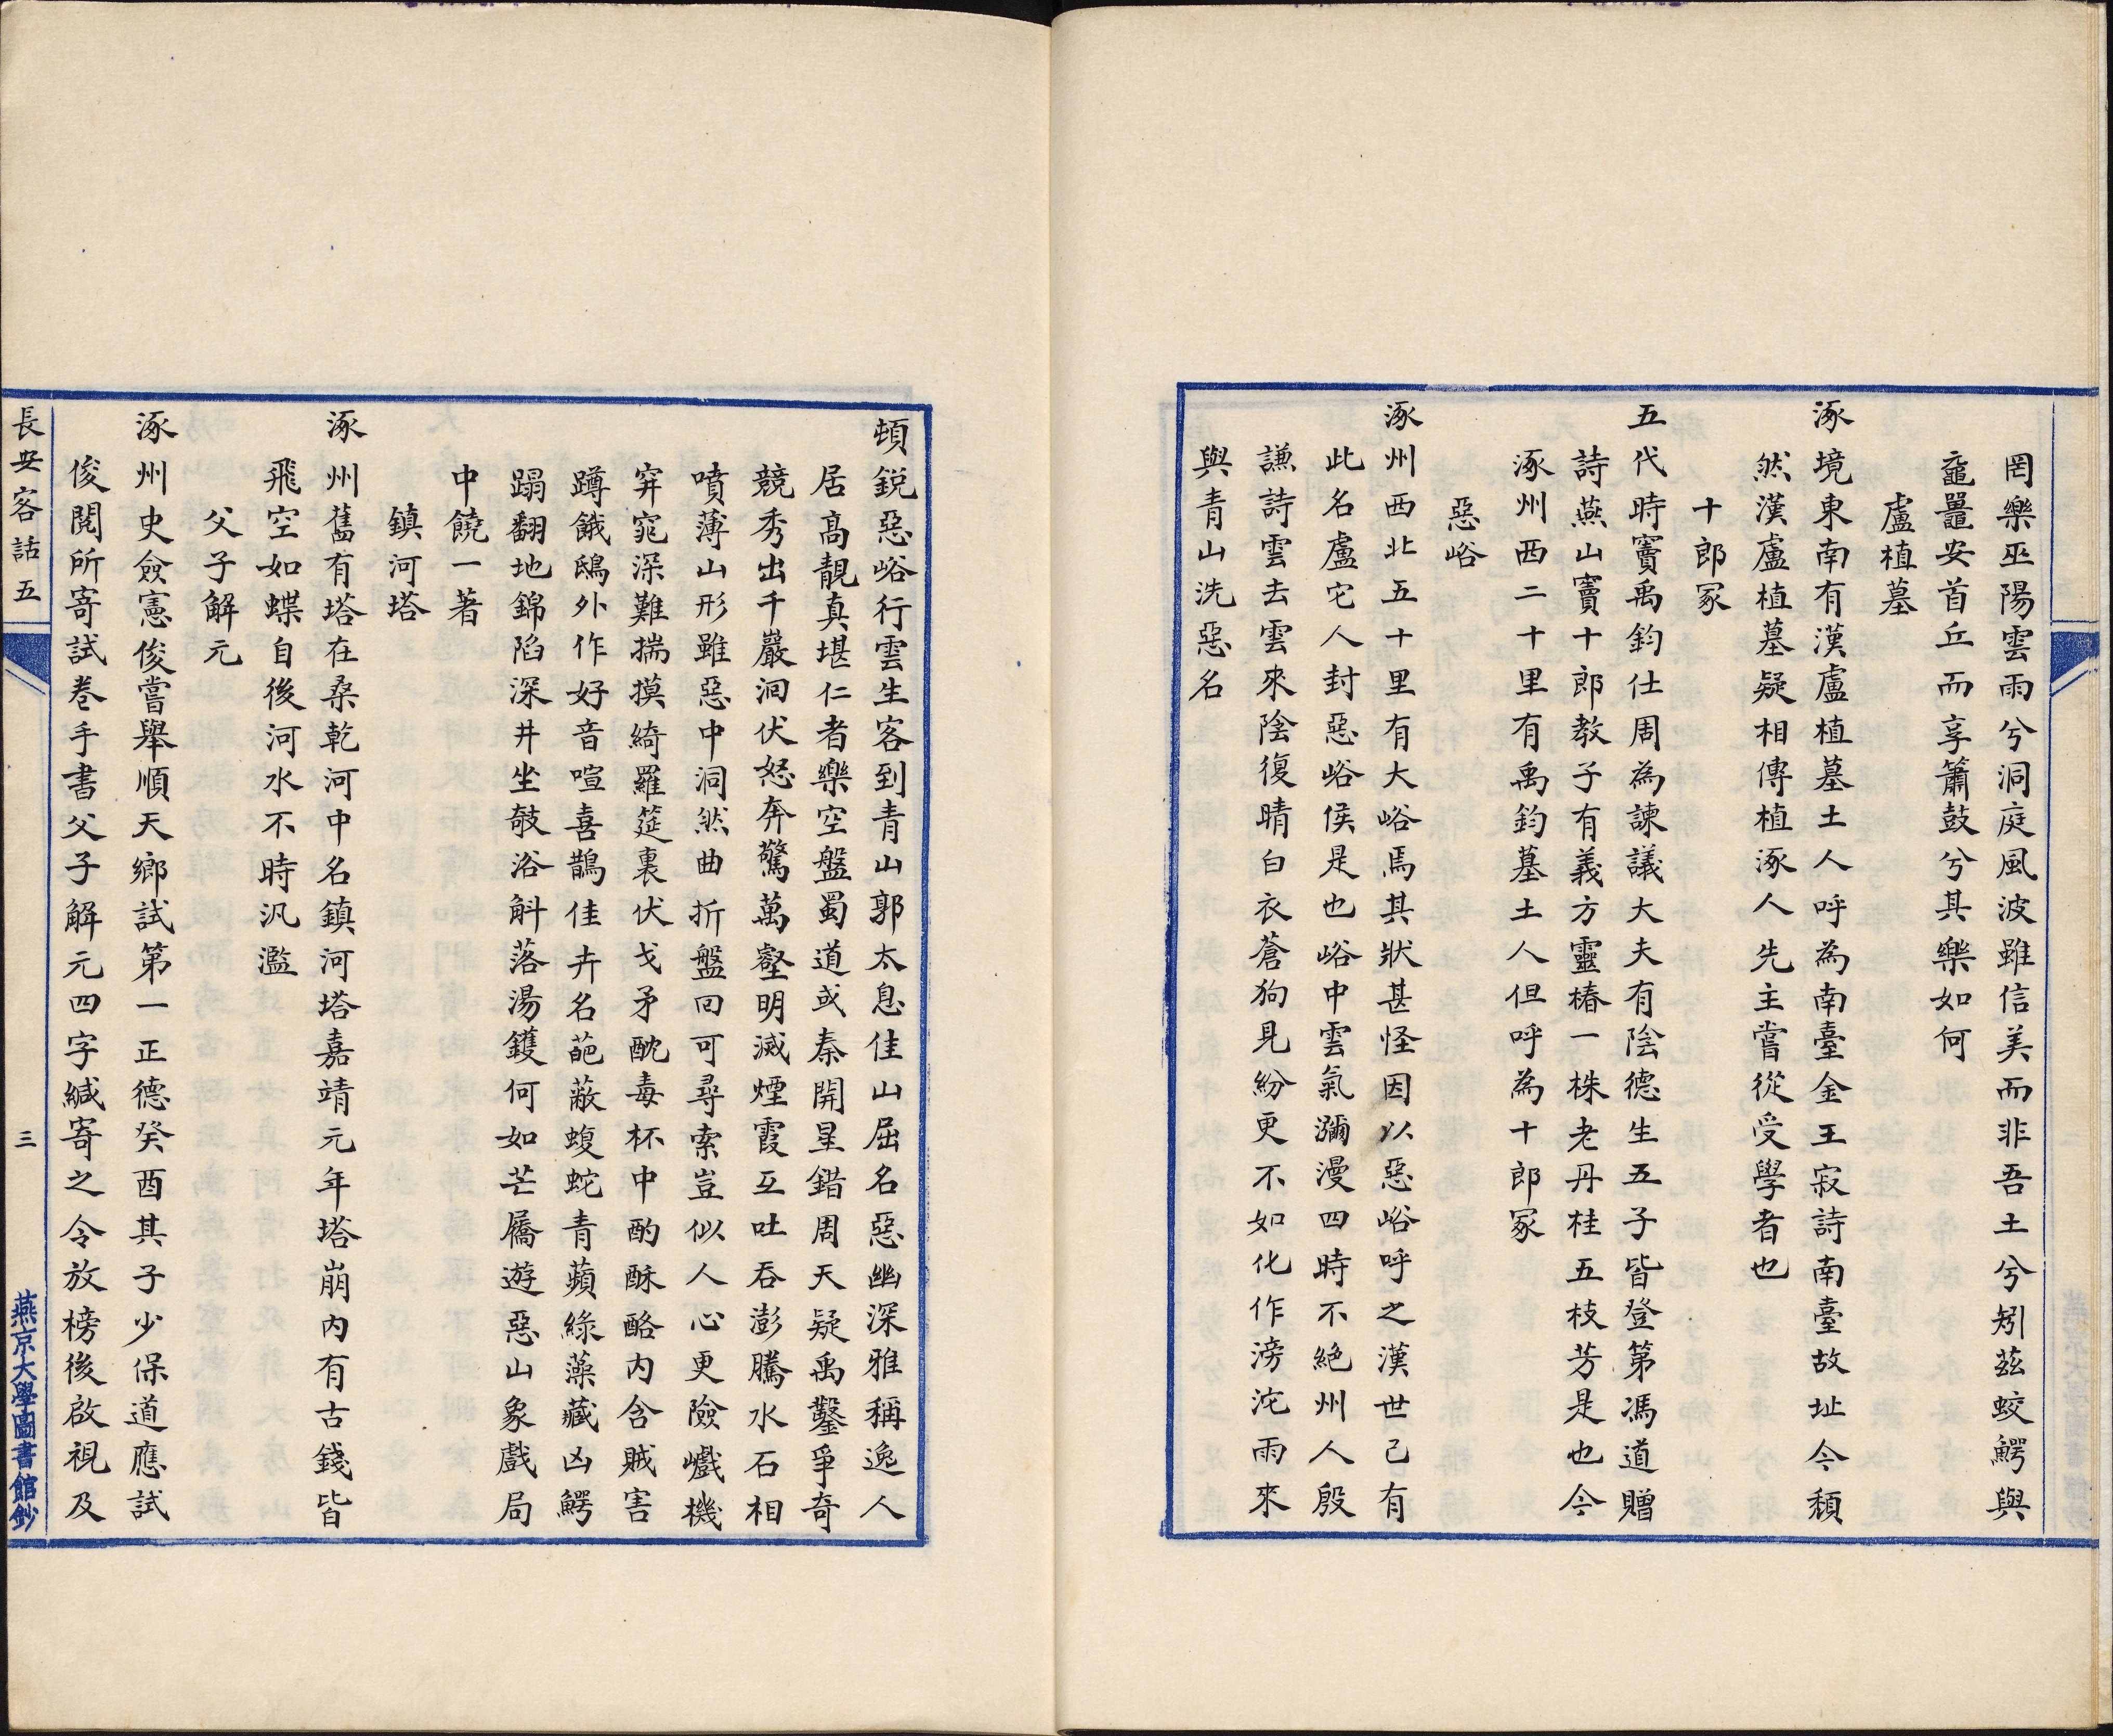 罔樂巫陽雲雨兮洞庭風波雖信美而非吾土兮矧茲蛟鰐與
黿鼉安首丘而享簫鼓兮其樂如何
盧植墓
涿境東南有漢盧植墓土人呼為南臺金王寂詩南臺故址今頹
然漢盧植墓疑相傳植涿人先主嘗從受學者也
十郎冢
五代時竇禹鈞仕周為諫議大夫有陰德生五子皆登第馮道贈
詩燕山竇十郎教子有義方靈椿一株老丹桂五枝芳是也今
涿州西二十里有禹鈞墓土人但呼為十郎冢
惡峪
涿州西北五十里有大峪焉其狀甚怪因以惡峪呼之漢世已有
此名盧它人封惡峪侯是也峪中雲氣瀰漫四時不絕州人殷
謙詩雲去雲來陰復晴白衣蒼狗見紛更不如化作滂沱雨來
與青山洗惡名
頓銳惡峪行雲生客到青山郭太息佳山屈名惡幽深雅稱逸人
居高靚真堪仁者樂空盤蜀道或秦開星錯周天疑禹鑿爭奇
競秀出千巖洄伏怒奔驚萬壑明滅煙霞互吐吞澎騰水石相
噴薄山形雖惡中洞然曲折盤回可尋索豈似人心更險巇機
穽窕深難揣摸綺羅筵裏伏戈矛酖毒杯中酌酥酪內含賊害
蹲餓鴟外作好音喧喜鵲佳卉名葩蔽蝮蛇青蘋綠藻藏凶鰐
蹋翻地錦陷深井坐攲浴斛落湯鑊何如芒屩遊惡山象戲局
中饒一著
鎮河塔
涿州舊有塔在桑乾河中名鎮河塔嘉靖元年塔崩內有古錢皆
飛空如蝶自後河水不時汎濫
父子解元
涿州史僉憲俊嘗舉順天鄉試第一正德癸酉其子少保道應試
俊閱所寄試卷手書父子解元四字緘寄之令放榜後啟視及
長安客話五
三
燕京大學圖書館鈔